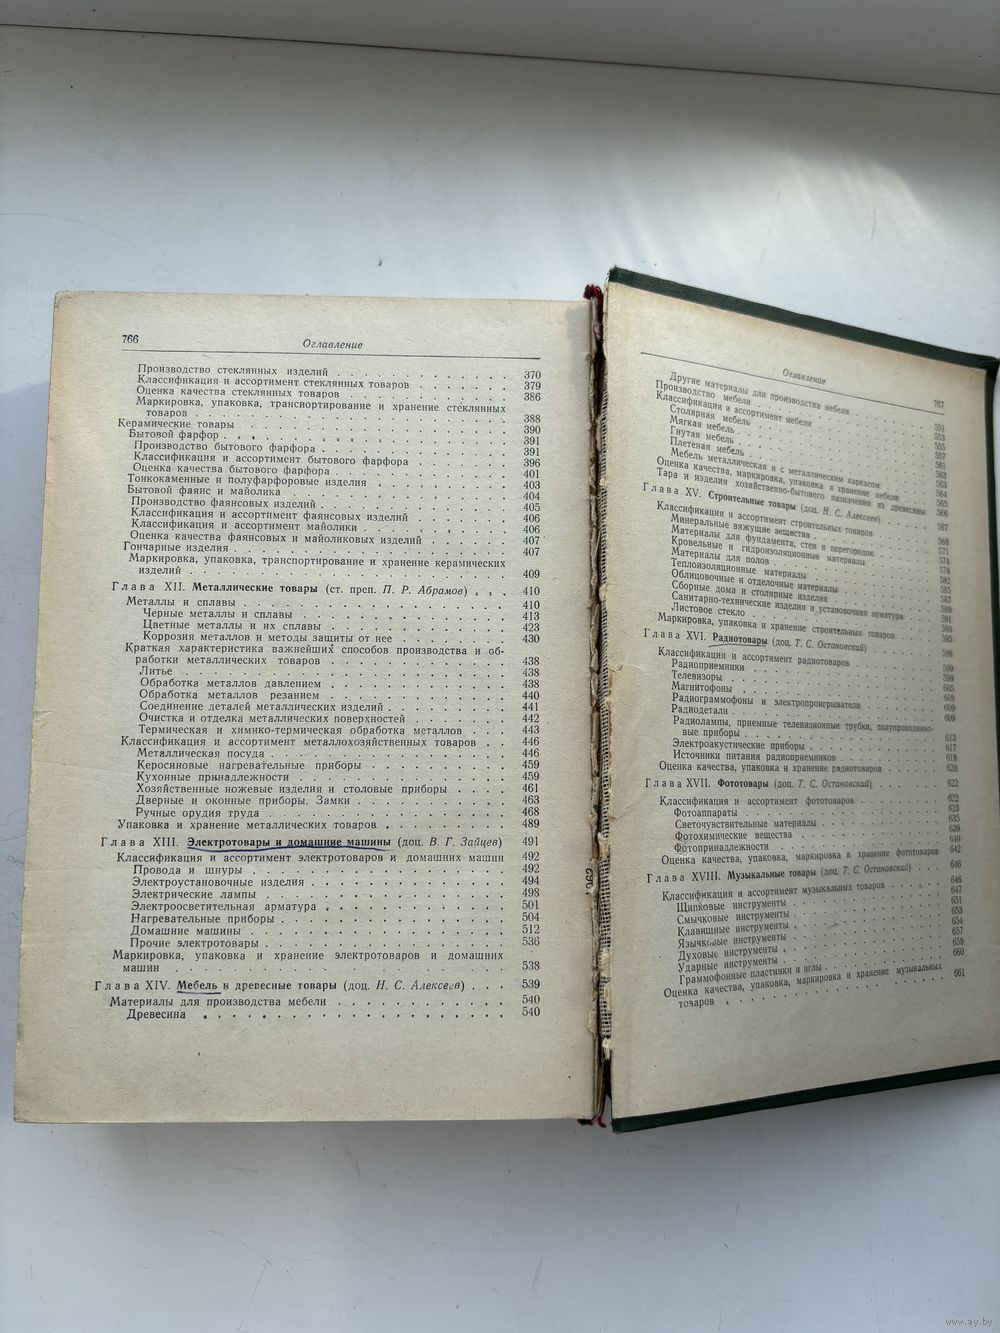 766
Оглавление
Производство стеклянных изделий . . . 370
Классификация и ассортимент стеклянных товаров . . . 379
Оценка качества стеклянных товаров . . . 386
Маркировка, упаковка, транспортирование и хранение стеклянных
товаров . . . 388
Керамические товары . . . 390
Бытовой фарфор . . . 391
Производство бытового фарфора . . . 391
Классификация и ассортимент бытового фарфора . . . 396
Оценка качества бытового фарфора . . . 401
Тонкокаменные и полуфарфоровые изделия . . . 403
Бытовой фаянс и майолика . . . 404
Производство фаянсовых изделий . . . 405
Классификация и ассортимент фаянсовых изделий . . . 406
Классификация и ассортимент майолики . . . 406
Оценка качества фаянсовых и майоликовых изделий . . . 407
Гончарные изделия . . . 407
Маркировка, упаковка, транспортирование и хранение керамических
изделий . . . 409
Глава XII. Металлические товары (ст. преп. П. Р. Абрамов) . . . 410
Металлы и сплавы . . . 410
Черные металлы и сплавы . . . 413
Цветные металлы и их сплавы . . . 423
Коррозия металлов и методы защиты от нее . . . 430
Краткая характеристика важнейших способов производства и об-
работки металлических товаров . . . 438
Литье . . . 438
Обработка металлов давлением . . . 438
Обработка металлов резанием . . . 440
Соединение деталей металлических изделий . . . 441
Очистка и отделка металлических поверхностей . . . 442
Термическая и химико-термическая обработка металлов . . . 443
Классификация и ассортимент металлохозяйственных товаров . . . 446
Металлическая посуда . . . 446
Керосиновые нагревательные приборы . . . 459
Кухонные принадлежности . . . 459
Хозяйственные ножевые изделия и столовые приборы . . . 461
Дверные и оконные приборы. Замки . . . 463
Ручные орудия труда . . . 468
Упаковка и хранение металлических товаров . . . 489
Глава XIII. Электротовары и домашние машины (доц. В. Г. Зайцев) 491
Классификация и ассортимент электротоваров и домашних машин 492
Провода и шнуры . . . 492
Электроустановочные изделия . . . 494
Электрические лампы . . . 498
Электроосветительная арматура . . . 501
Нагревательные приборы . . . 504
Домашние машины . . . 512
Прочие электротовары . . . 536
Маркировка, упаковка и хранение электротоваров и домашних
машин . . . 538
Глава XIV. Мебель и древесные товары (доц. Н. С. Алексеев) . . . 539
Материалы для производства мебели . . . 540
Древесина . . . 540
Оглавление
767
Другие материалы для производства мебели . . . 551
Производство мебели . . . 553
Классификация и ассортимент мебели . . . 555
Столярная мебель . . . 557
Мягкая мебель . . . 561
Гнутая мебель . . . 563
Плетеная мебель . . . 563
Мебель металлическая и с металлическим каркасом . . . 564
Оценка качества, маркировка, упаковка и хранение мебели . . . 565
Тара и изделия хозяйственно-бытового назначения из древесины 566
Глава XV. Строительные товары (доц. Н. С. Алексеев) . . . 567
Классификация и ассортимент строительных товаров . . . 568
Минеральные вяжущие вещества . . . 571
Материалы для фундамента, стен и перегородок . . . 574
Кровельные и гидроизоляционные материалы . . . 578
Материалы для полов . . . 582
Теплоизоляционные материалы . . . 585
Облицовочные и отделочные материалы . . . 587
Сборные дома и столярные изделия . . . 589
Санитарно-технические изделия и установочная арматура . . . 591
Листовое стекло . . . 593
Маркировка, упаковка и хранение строительных товаров . . . 595
Глава XVI. Радиотовары (доц. Т. С. Остановский) . . . 598
Классификация и ассортимент радиотоваров . . . 599
Радиоприемники . . . 599
Телевизоры . . . 605
Магнитофоны . . . 608
Радиограммофоны и электропроигрыватели . . . 609
Радиодетали . . . 609
Радиолампы, приемные телевизионные трубки, полупроводнико-
вые приборы . . . 613
Электроакустические приборы . . . 617
Источники питания радиоприемников . . . 618
Оценка качества, упаковка и хранение радиотоваров . . . 620
Глава XVII. Фототовары (доц. Т. С. Остановский) . . . 622
Классификация и ассортимент фототоваров . . . 622
Фотоаппараты . . . 623
Светочувствительные материалы . . . 635
Фотохимические вещества . . . 639
Фотопринадлежности . . . 640
Оценка качества, упаковка, маркировка и хранение фототоваров 642
Глава XVIII. Музыкальные товары (доц. Т. С. Остановский) . . . 646
Классификация и ассортимент музыкальных товаров . . . 646
Щипковые инструменты . . . 647
Смычковые инструменты . . . 651
Клавишные инструменты . . . 653
Язычковые инструменты . . . 654
Духовые инструменты . . . 657
Ударные инструменты . . . 658
Граммофонные пластинки и иглы . . . 660
Оценка качества, упаковка, маркировка и хранение музыкальных
товаров . . . 661
www.ay.by